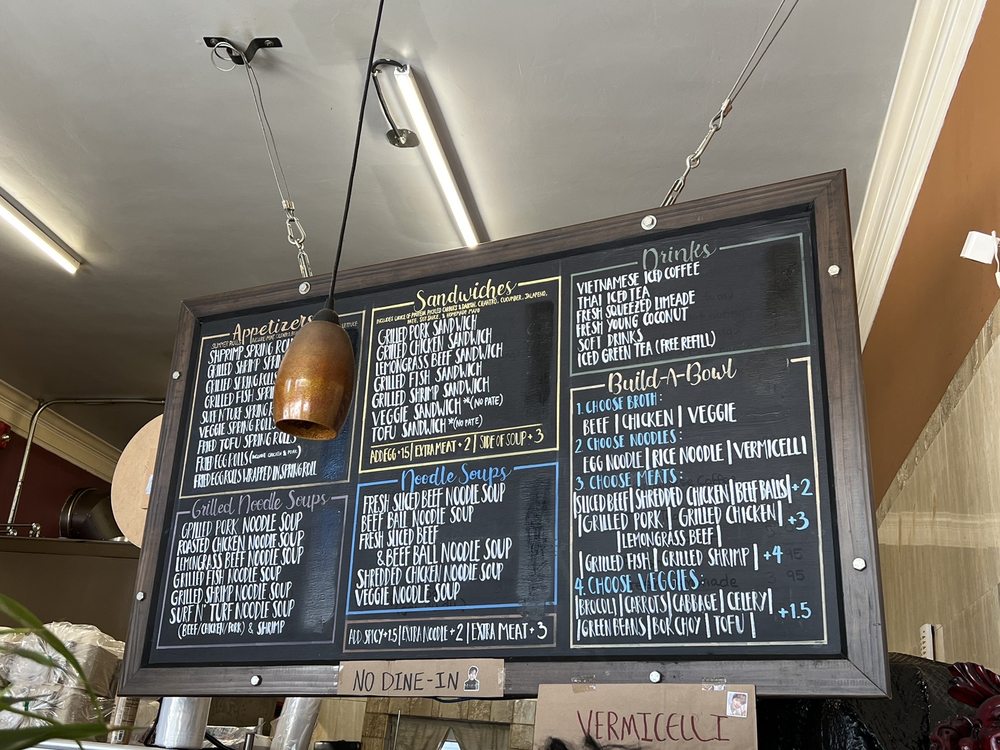 Appetizers
SUMMER ROLLS
SHRIMP SPRING ROLLS
GRILLED SHRIMP SPRING
GRILLED SPRING ROLLS
GRILLED FISH SPRING
SURF N' TURF SPRING
VEGGIE SPRING ROLLS
FRIED TOFU SPRING ROLLS
FRIED EGG ROLLS (INCLUDE CHICKEN & PORK)
FRIED EGG ROLLS WRAPPED IN SPRING ROLL
Grilled Noodle Soups
GRILLED PORK NOODLE SOUP
ROASTED CHICKEN NOODLE SOUP
LEMONGRASS BEEF NOODLE SOUP
GRILLED FISH NOODLE SOUP
GRILLED SHRIMP NOODLE SOUP
SURF N' TURF NOODLE SOUP
(BEEF/CHICKEN/PORK) & SHRIMP
Sandwiches
INCLUDES CHOICE OF PROTEIN, PICKLED CARROTS & DAIKON, CILANTRO, CUCUMBER, JALAPENO,
PATE, SOY SAUCE, & HOMEMADE MAYO
GRILLED PORK SANDWICH
GRILLED CHICKEN SANDWICH
LEMONGRASS BEEF SANDWICH
GRILLED FISH SANDWICH
GRILLED SHRIMP SANDWICH
VEGGIE SANDWICH *(NO PATE)
TOFU SANDWICH *(NO PATE)
ADD EGG +1.5 | EXTRA MEAT + 2 | SIDE OF SOUP + 3
Noodle Soups
FRESH SLICED BEEF NOODLE SOUP
BEEF BALL NOODLE SOUP
FRESH SLICED BEEF
& BEEF BALL NOODLE SOUP
SHREDDED CHICKEN NOODLE SOUP
VEGGIE NOODLE SOUP
ADD SPICY +1.5 | EXTRA NOODLE + 2 | EXTRA MEAT + 3
Drinks
VIETNAMESE ICED COFFEE
THAI ICED TEA
FRESH SQUEEZED LIMEADE
FRESH YOUNG COCONUT
SOFT DRINKS
ICED GREEN TEA (FREE REFILL)
Build-A-Bowl
1. CHOOSE BROTH:
BEEF | CHICKEN | VEGGIE
2. CHOOSE NOODLES:
EGG NOODLE | RICE NOODLE | VERMICELLI
3. CHOOSE MEATS:
|SLICED BEEF|SHREDDED CHICKEN|BEEF BALLS| +2
|GRILLED PORK | GRILLED CHICKEN| +3
|LEMONGRASS BEEF|
|GRILLED FISH | GRILLED SHRIMP | +4
4. CHOOSE VEGGIES:
|BROCOLI|CARROTS|CABBAGE | CELERY| +1.5
|GREEN BEANS| BOK CHOY | TOFU |
NO DINE-IN
VERMICELLI